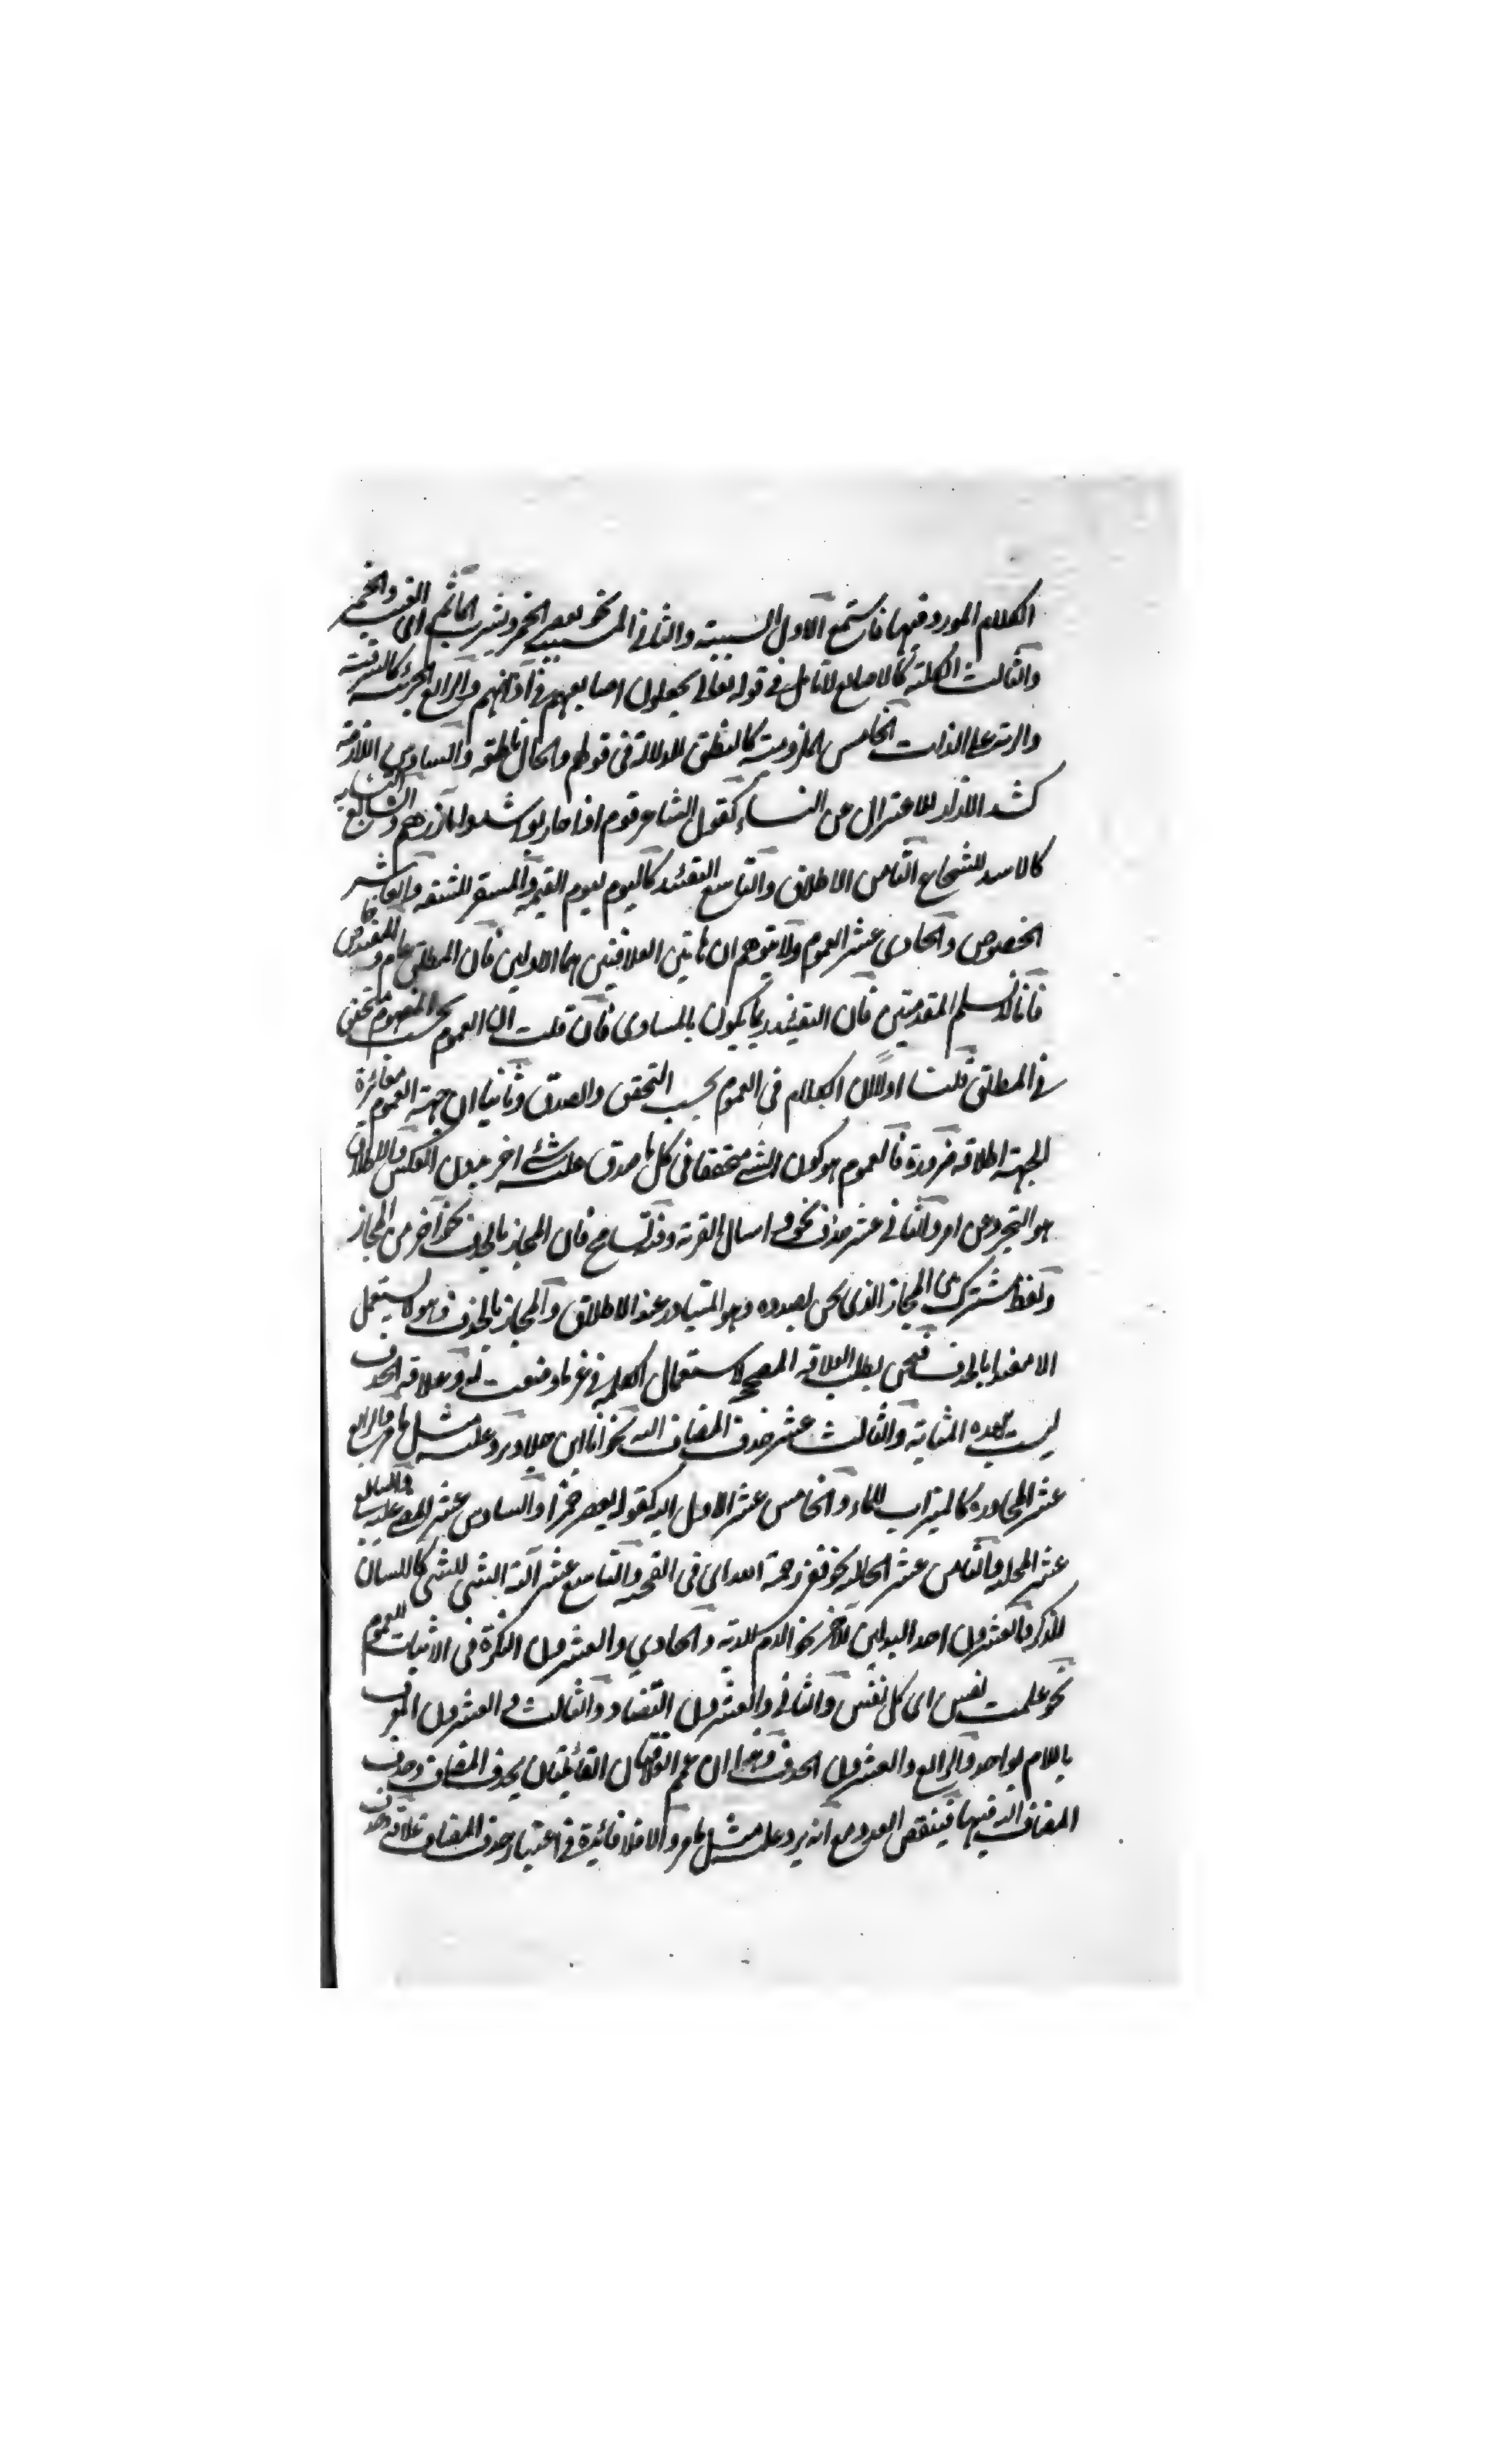 الكلام المورد فيها فاستمع الاول السببية والثاني المسببية نحو يعصر الخمر ويشرب الماثم اى العنب والخمر
والثالث الكلية كالاصابع للانامل في قوله تعالى يجعلون اصابعهم في آذانهم والرابع الجزئية كالرقبة
والرقبة على الذات الخامس الملزومية كالنطق للدلالة في قولهم والحال ناطقة والسادس اللازمية
كشد الازار للاعتزال عن النساء كقول الشاعر قوم اذا حاربوا شدوا مآزرهم والسابع التشابه
كالاسد للشجاع الثامن الاطلاق والتاسع التقئيد كاليوم ليوم القيمة والمستفر للشفة والعاشر
الخصوص والحادى عشر العموم ولا يتوهم ان هاتين العلاقتين هما الاوليين فان المطلق عام والمقيد خاص
فانا لا نسلم المقدمتين فان التقئيد ربما يكون بالمساوى فان قلت ان العموم بحسب المفهوم متحقق
في المطلق قلت اولا ان الكلام في العموم بحسب التحقق والصدق وثانيا ان جهة العموم مغائرة
لجهة اطلاقه ضرورة فالعموم هو كون الشئ متحققا في كل ما صدق عليه شئ اخر بدون العكس والاطلاق
هو التجرد عن امر والثاني عشر حذف نحو واسال القرية وفيه تسامح فان المجاز بالحذف نحو آخر من المجاز
ولفظ مشترك بين المجاز الذى نحن بصدده وهو المتبادر عند الاطلاق والمجاز بالحذف وهو لا يستعمل
الا مقيدا بالحذف فنحن بطلب العلاقة المصححة لاستعمال الكلمة في غير ما وضعت له وعلاقة الحذف
ليست بهذه المثابة والثالث عشر حذف المضاف اليه نحو انا ابن جلا ويرد عليه مثل ما مر والرابع
عشر المجاورة كالميزاب للماء والخامس عشر الاول اليه كقوله يعصر خمرا والسادس عشر عليه والسابع
عشر المحلية والثامن عشر الحالية نحو ففي رحمة الله اى في القيمة والتاسع عشر آلة الشئ للشئ كاللسان
للذكر والعشرون احد البدلين للاخر نحو الدم للدية والحادي والعشرون النكرة في الاثبات للعموم
نحو علمت نفس اى كل نفس والثاني والعشرون التضاد والثالث والعشرون المعرف
باللام لواحد والرابع والعشرون الحذف وهذا ان عم العلاقتان القائلتان بحذف المضاف وحذف
المضاف اليه فيها فينتقص العدد مع انه يرد عليه مثل ما مر والا فلا فائدة في اعتبار حذف المضاف علاقة وحذف